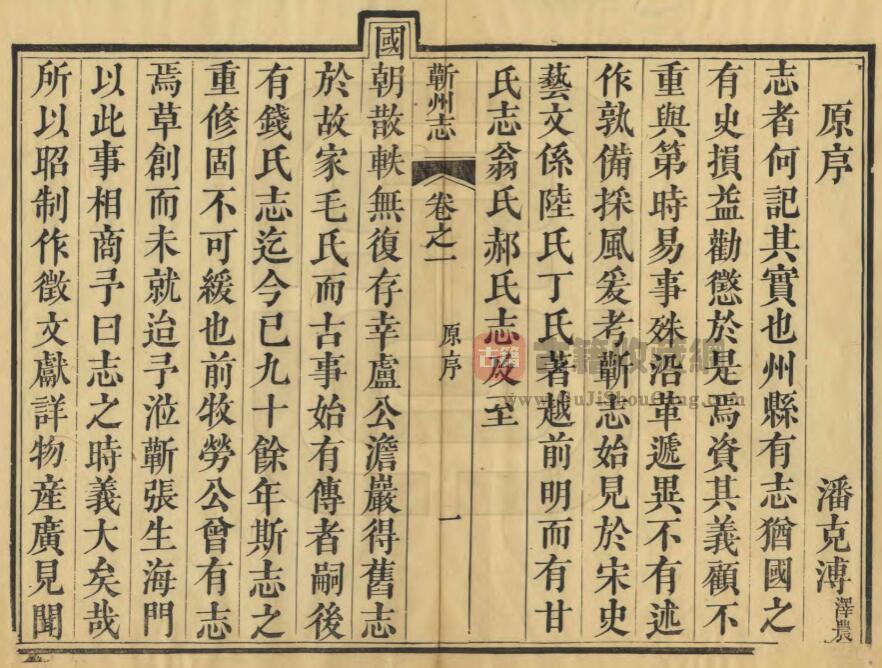 原序 潘克溥 澤農
志者何記其實也州縣有志猶國之
有史損益勸懲於是焉資其義顧不
重與第時易事殊沿革遞異不有述
作孰備採風爰考蘄志始見於宋史
藝文係陸氏丁氏著越前明而有甘
氏志翁氏郝氏志及至
蘄州志 卷之一 原序 一
國朝散軼無復存幸盧公澹巖得舊志
於故家毛氏而古事始有傳者嗣後
有錢氏志迄今已九十餘年斯志之
重修固不可緩也前牧勞公曾有志
焉草創而未就迨予涖蘄張生海門
以此事相商予曰志之時義大矣哉
所以昭制作徵文獻詳物產廣見聞
古籍
古籍收藏網
www.GuJiShouCang.com